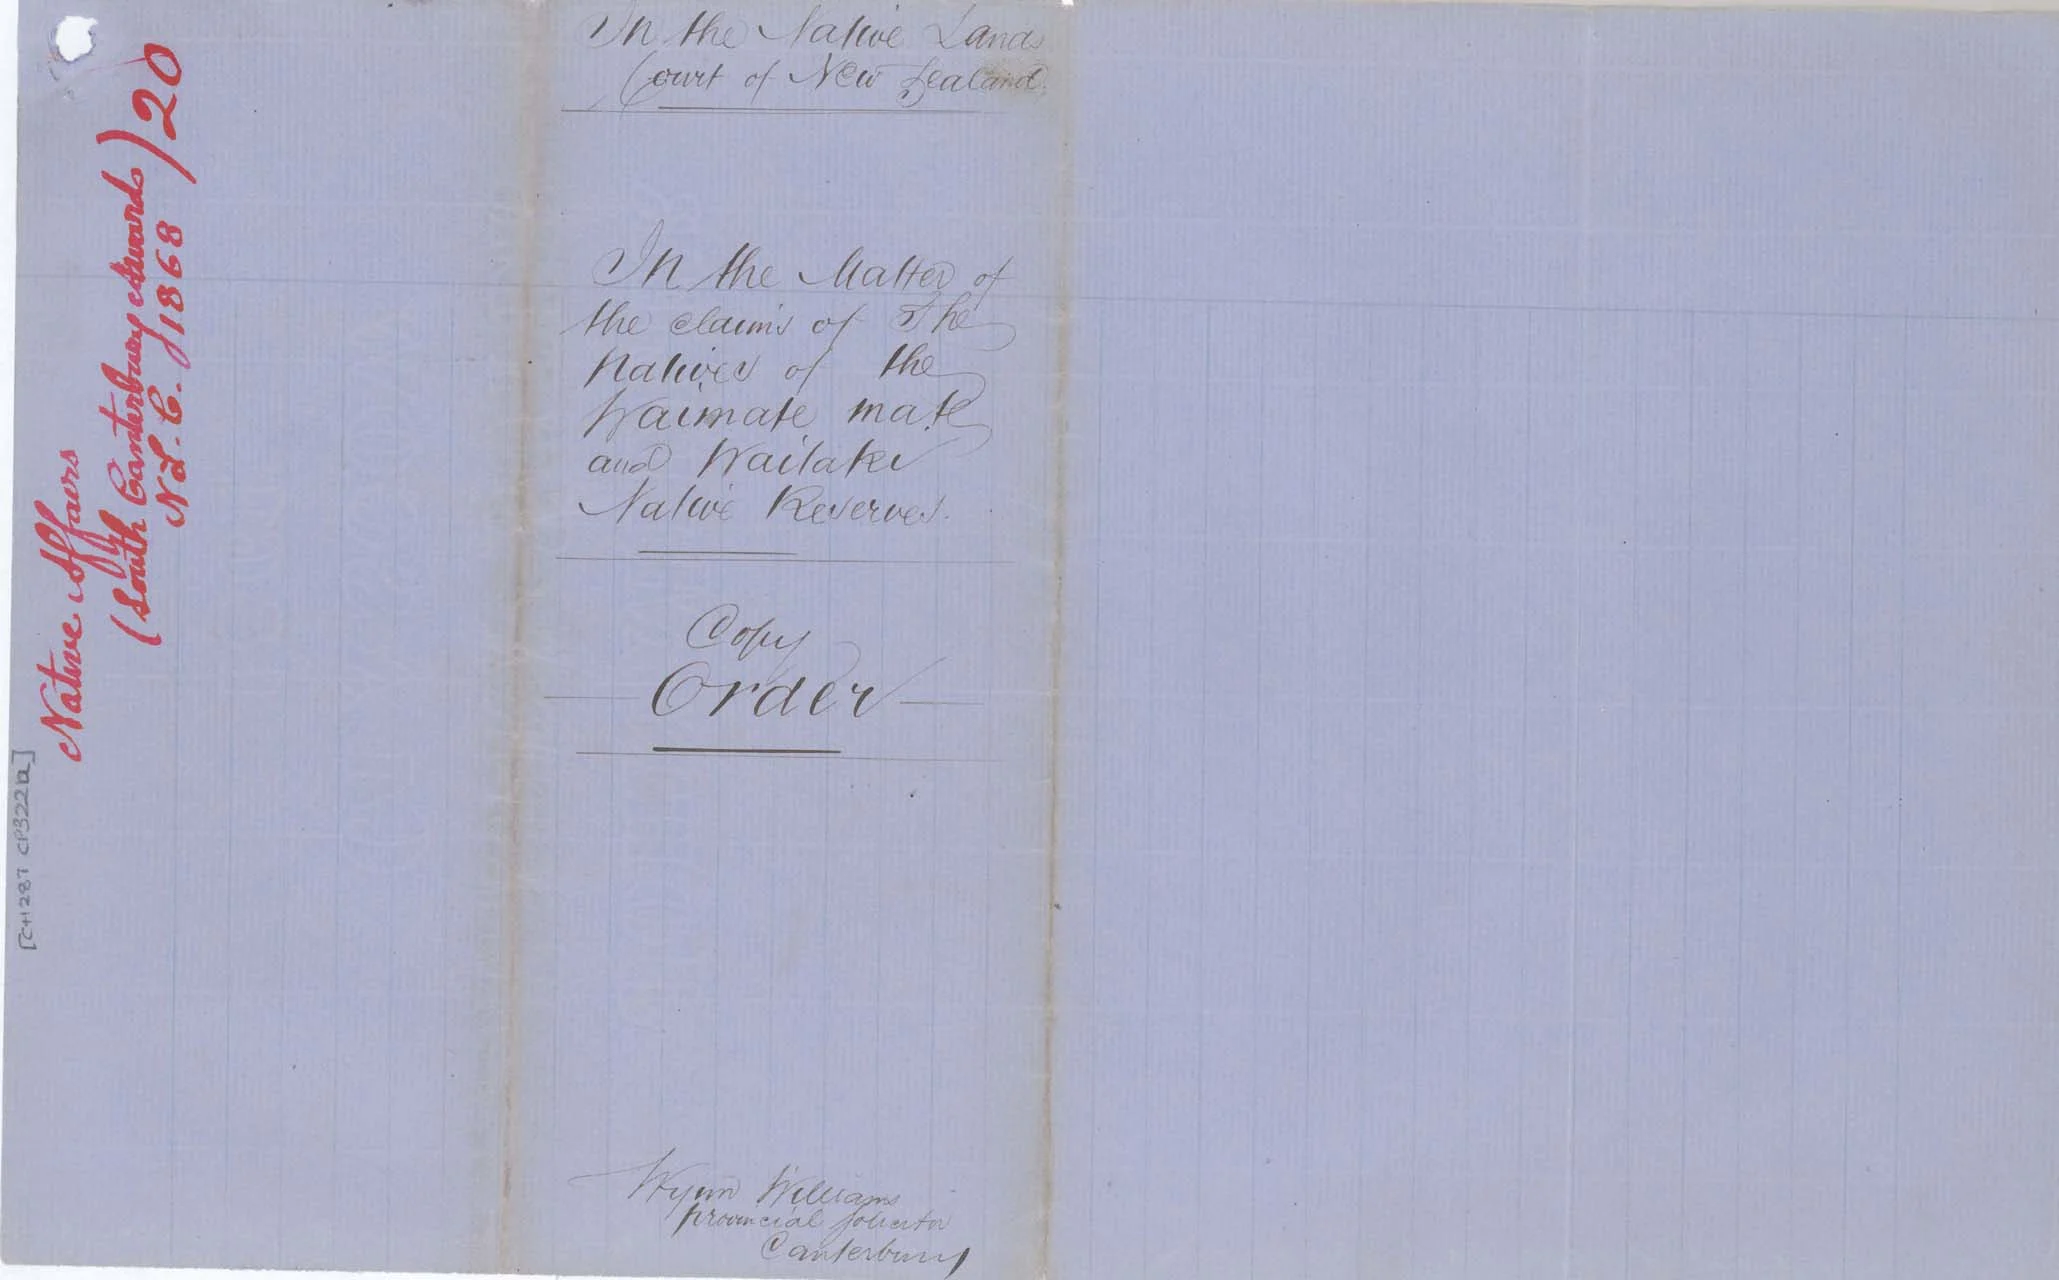 In the Native Lands
Court of New Zealand
In the Matter of
the claims of The
Natives of the
Waimate mate
and Waitaki
Native Reserves.
Copy
Order
Wynn Williams
Provincial Solicitor
Canterbury
Native Affairs
(South Canterbury Awards)
N.L.C. 1868
20
[CH287 CP322a]